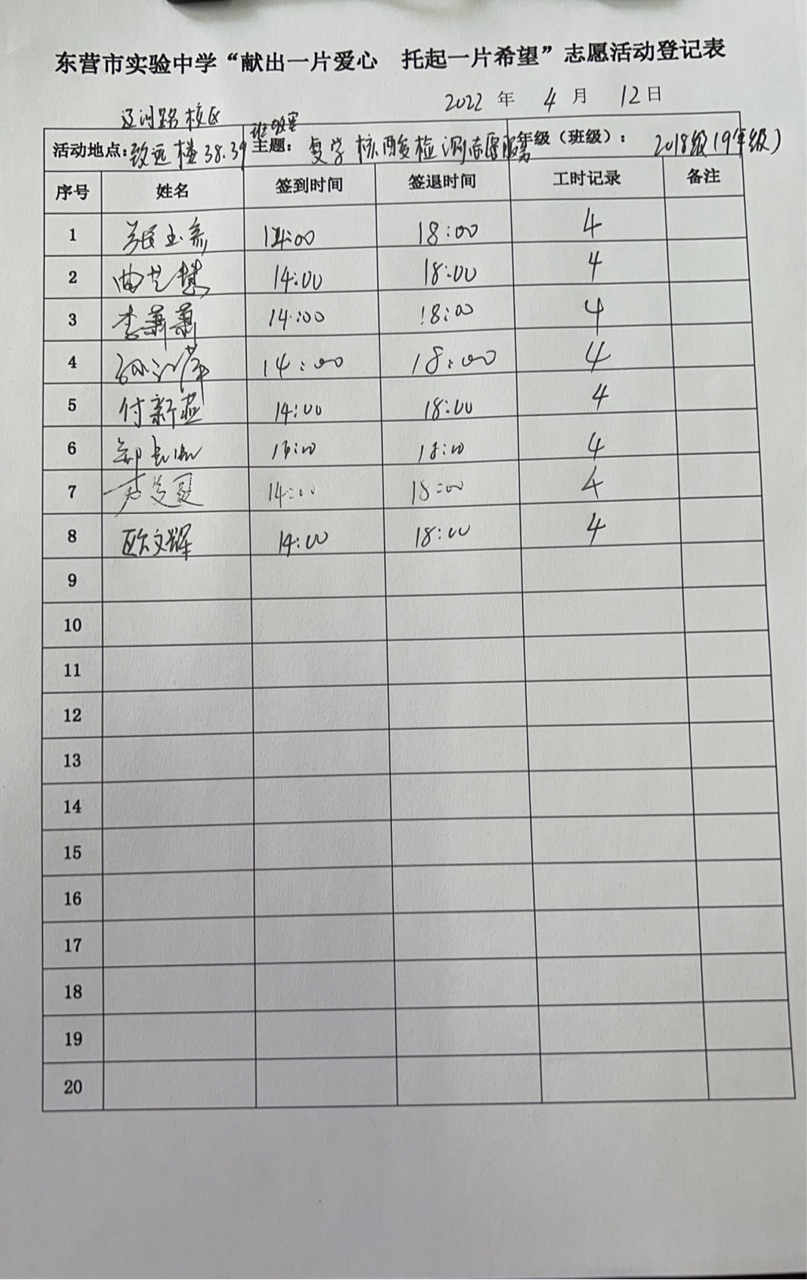 东营市实验中学“献出一片爱心 托起一片希望”志愿活动登记表
2022 年 4 月 12 日
辽河路校区
活动地点：致远楼38.39 主题： 复学核酸检测志愿服务 年级（班级）： 2018级(9年级)
序号 姓名 签到时间 签退时间 工时记录 备注
1 14:00 18:00 4
2 14:00 18:00 4
3 李萧萧 14:00 18:00 4
4 14:00 18:00 4
5 付新蓝 14:00 18:00 4
6 18:00 4
7 14:00 18:00 4
8 欧文辉 14:00 18:00 4
9
10
11
12
13
14
15
16
17
18
19
20